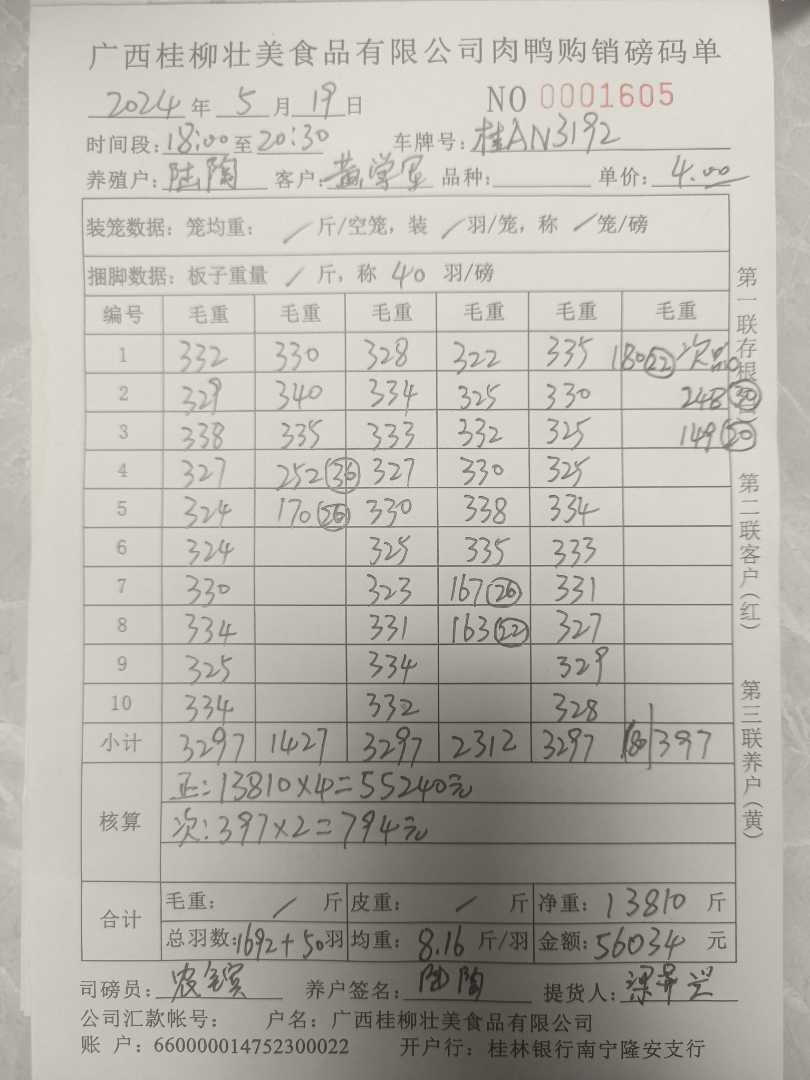 广西桂柳壮美食品有限公司肉鸭购销磅码单
2024 年 5 月 19 日 NO 0001605
时间段: 18:00 至 20:30 车牌号: 桂AN3192
养殖户: 陆陶 客户: 黄学军 品种: 单价: 4.00
装笼数据: 笼均重: / 斤/空笼, 装 / 羽/笼, 称 / 笼/磅
捆脚数据: 板子重量 / 斤, 称 40 羽/磅
编号 毛重 毛重 毛重 毛重 毛重 毛重
1 332 330 328 322 335 180(22) 次品
2 329 340 334 325 330 248(30)
3 338 335 333 332 325 149(20)
4 327 252(30) 327 330 325
5 324 170(26) 330 338 334
6 324 325 335 333
7 330 323 167(20) 331
8 334 331 163(22) 327
9 325 334 329
10 334 332 328
小计 3297 1427 3297 2312 3297 180 397
核算
正: 13810×4=55240元
次: 397×2=794元
合计
毛重: / 斤 皮重: / 斤 净重: 13810 斤
总羽数: 1692+50 羽 均重: 8.16 斤/羽 金额: 56034 元
司磅员: 养户签名: 陆陶 提货人:
公司汇款帐号: 户名: 广西桂柳壮美食品有限公司
账 户: 660000014752300022 开户行: 桂林银行南宁隆安支行
第一联存根
第二联客户(红)
第三联养户(黄)